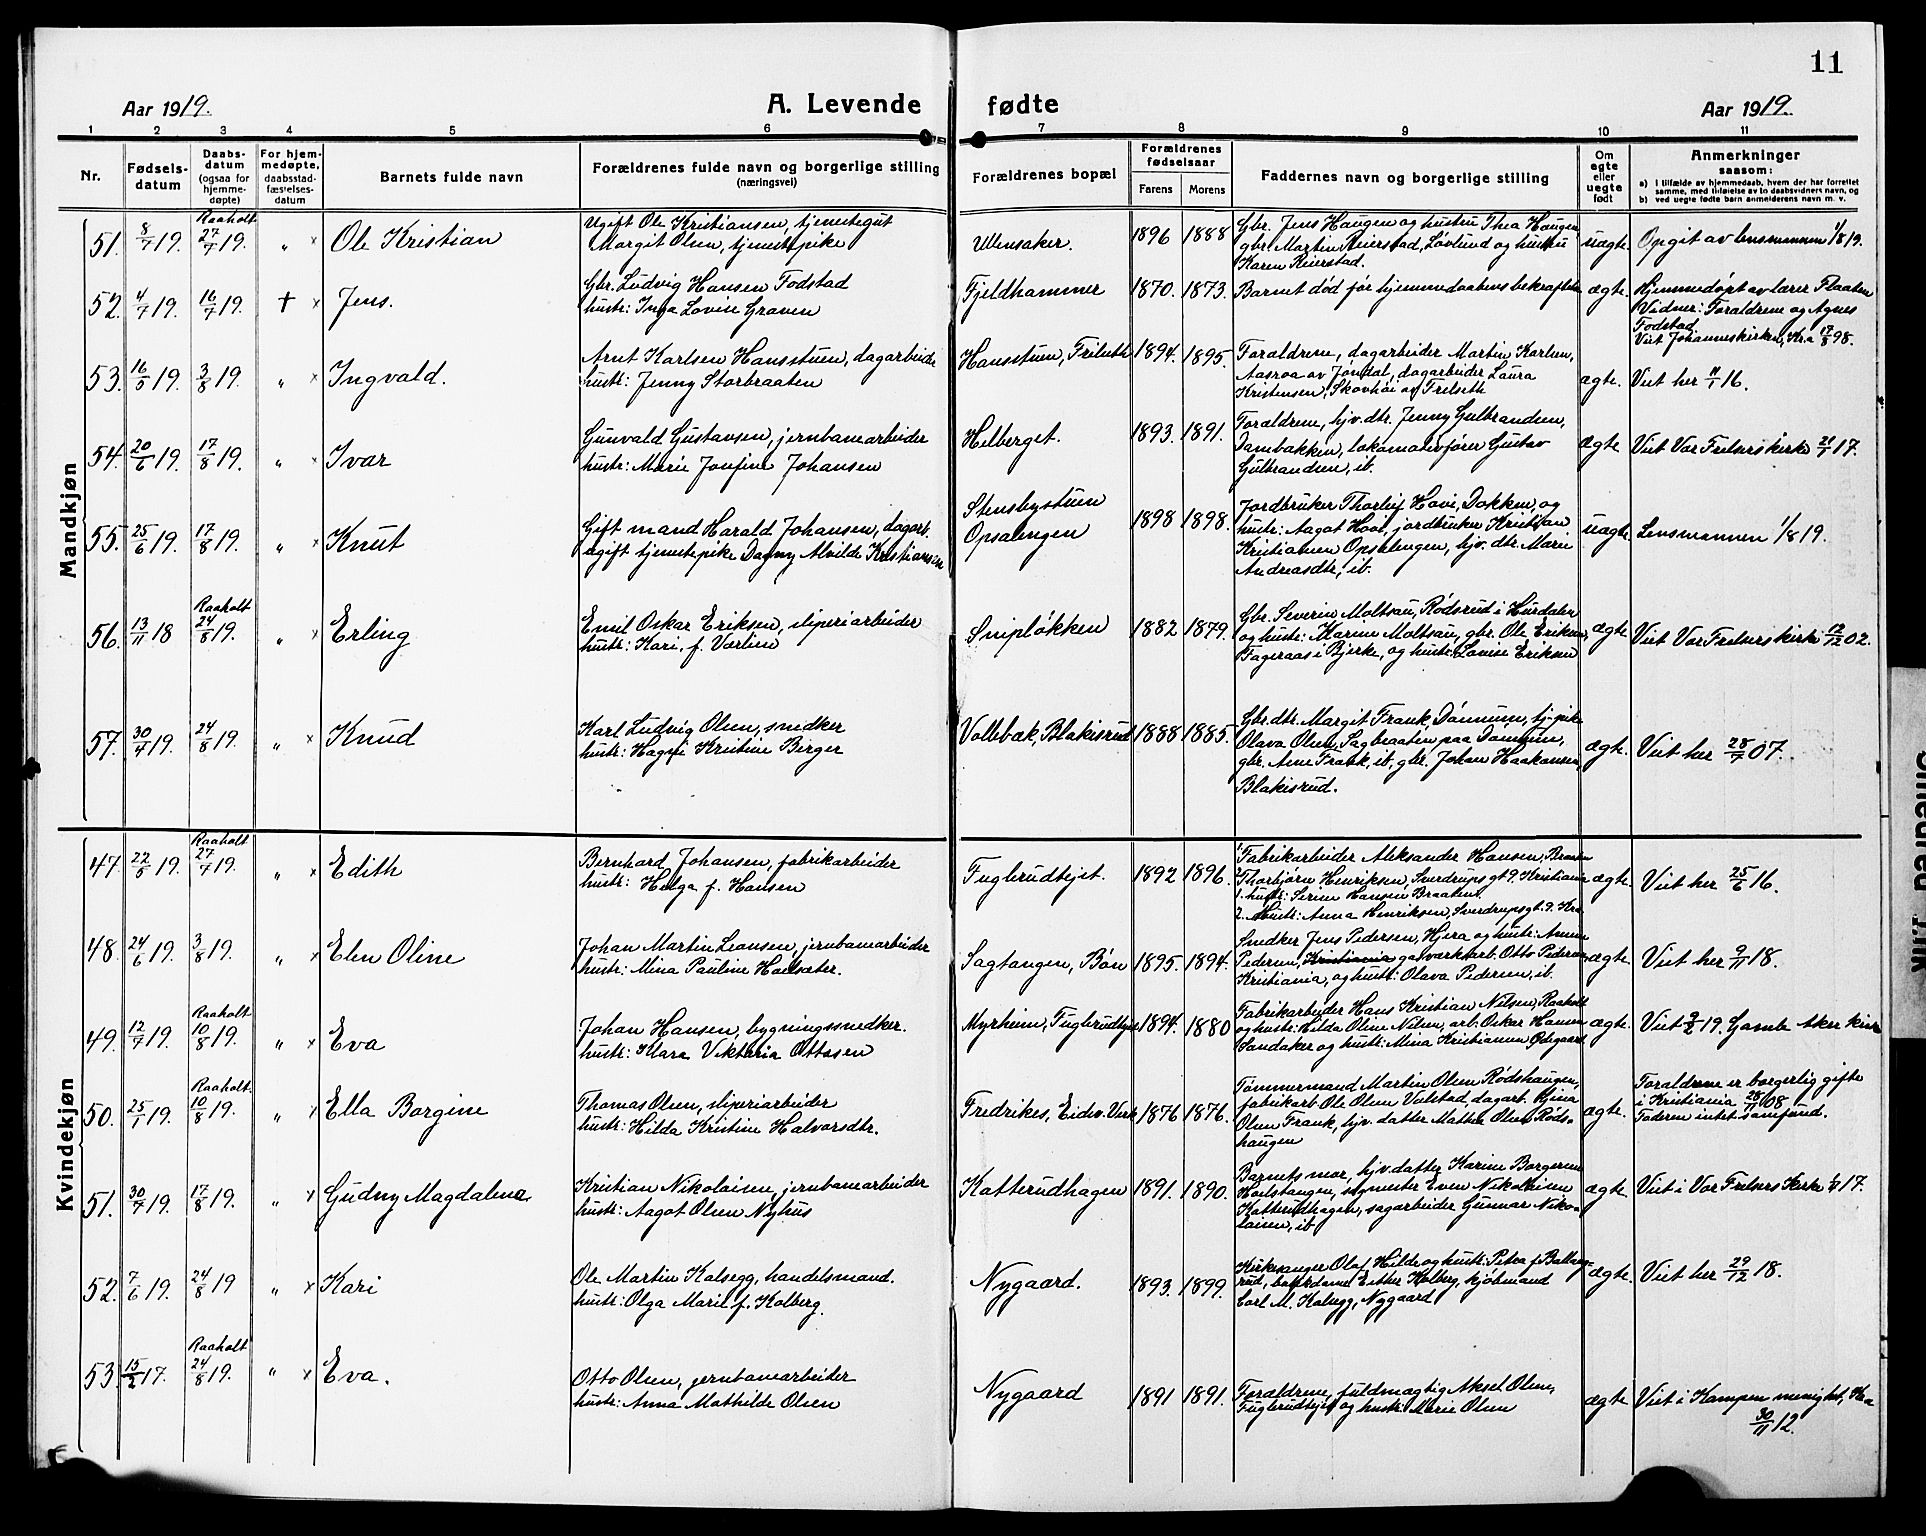 11
Aar 1919.
A. Levende fødte
Aar 1919.
1 2 3 4 5 6 7 8 9 10 11
Nr.
Fødselsdatum
Daabsdatum (ogsaa for hjemmedøpte)
For hjemmedøpte, daabsstadfæstelsesdatum
Barnets fulde navn
Forældrenes fulde navn og borgerlige stilling (næringsvei)
Forældrenes bopæl
Forældrenes fødselsaar
Farens
Morens
Faddernes navn og borgerlige stilling
Om egte eller uegte født
Anmerkninger saasom:
a) I tilfælde av hjemmedaab, hvem der har forrettet samme, med tilføielse av to daabsvidners navn, og
b) ved uegte fødte barn anmelderens navn m. v.
Mandkjøn
51. 8/7 19. Raaholt 27/7 19. " × Ole Kristian
Ugift Ole Kristiansen, tjenestegut
Margit Olsen, tjenestepike
Ullensaker. 1896 1888
Gbr. Jens Haugen og hustru Thea Haugen
gbr. Martin Reierstad, Løvlund og hustru
Karen Reierstad.
uægte. Opgit av lensmannen 1/8 19.
52. 4/7 19. 16/7 19. † × Jens.
Gbr. Ludvig Hansen Fodstad
hustr: Inga Lovise Graven
Fjeldhammer 1870. 1873. Barnet død før hjemmedaabens bekræftelse
ægte. Hjemmedøpt av lærer Flaaten
Vidner: Forældrene og Agnes
Fodstad
Viet Johanneskirken, Kra 17/8 98.
53. 16/5 19. 3/8 19. " × Ingvald.
Arnt Karlsen Hansstuen, dagarbeide
hustr: Jenny Storbraaten
Hansstuen, Trilseth 1894. 1895.
Forældrene, dagarbeider Martin Karlsen,
Aasroa av Jondal, dagarbeider Laura
Kristensen, Skovhøi av Frilseth
ægte. Viet her 11/1 16.
54. 20/6 19. 17/8 19. " × Ivar
Gunvald Gustavsen, jernbanearbeider
hustr: Marie Josfine Johansen
Helberget. 1893. 1891.
Forældrene, hjv. dtr. Jenny Gulbrandsen,
Dambakken, lokomotivfører Gustav
Gulbrandsen, ib.
ægte Viet Vor Frelsers kirke 21/1 17.
55. 25/6 19. 17/8 19. " × Knut
Gift mand Harald Johansen, dagarb.
ugift tjenestepike Dagny Alvilde Kristiansen
Stensbystuen
Opsalengen 1898 1898.
Jordbruker Thorleif Hovi, Dokken, og
hustr: Aagot Hovi, jordbruker Kristian
Kristiansen Opsalengen, hjv. dtr. Marie
Andreasdtr, ib.
uægte Lensmannen 1/8 19.
56. 13/11 18 Raaholt 24/8 19. " × Erling
Emil Oskar Eriksen, sliperiarbeider
hustr: Kari, f. Værlien
Snipløkken 1882 1879.
Gbr. Severin Moltzau, Rødsrud i Hurdalen
og hustr: Marine Moltzau, gbr. Ole Eriksen,
Fageraas i Bjerke, og hustr: Lovise Eriksen
ægte. Viet Vor Frelsers kirke 12/12 02.
57. 30/7 19. 24/8 19. " × Knud
Karl Ludvig Olsen, snedker
hustr: Hagny Kristine Birger
Vollebæk, Blakisrud 1888 1885.
Gbr. dtr. Margit Frank, Dønnum, tj-pike
Olava Olsen, Sagbraaten paa Dønnum,
gbr. Arne Frank, ib, gbr. Johan Haakonsen,
Blakisrud.
ægte. Viet her 28/7 07.
Kvindekjøn
47. 22/5 19. Raaholt 27/7 19. " × Edith
Bernhard Johansen, fabrikarbeider
hustr: Helga f. Hansen
Fuglerudtejet. 1892 1896.
1 Fabrikarbeider Aleksander Hansen, Braaten
2 Thorbjørn Henriksen, Sverdrupsgt 9. Kristiania
1. hustr: Serine Hansen Braaten.
2. Hustr: Anna Henriksen, Sverdrupsgt. 9. Kra.
ægte. Viet her 25/6 16.
48. 24/6 19. 3/8 19. " × Elen Oline
Johan Martin Leansen, jernbanearbeider
hustr: Mina Pauline Holsæter.
Sagtangen, Bøn 1895. 1894.
Snedker Jens Pedersen, Hjera og hustr: Anna
Pedersen, Kristiania gasverksarb. Otto Pedersen
Kristiania, og hustr: Olava Pedersen, ib.
ægte. Viet her 9/11 18.
49. 12/7 19. Raaholt 10/8 19. " × Eva
Johan Hansen, bygningssnedker.
hustr: Klara Viktoria Ottosen
Myrheim, Fuglerudtejet 1894. 1880
Fabrikarbeider Hans Kristian Nilsen, Raaholt
og hustr: Hilda Oline Nilsen, arb. Oskar Hansen
Sandaker og hustr: Mina Kristiansen Ødegaard
ægte. Viet 9/2 19. Gamle Aker kirke
50. 25/1 19. Raaholt 10/8 19. " × Ella Borgine
Thomas Olsen, sliperiarbeider
hustr: Hilda Kristine Halvorsdtr.
Fredrikes, Eidsv. Verk 1876 1876.
Tømmermand Martin Olsen Rødshaugen,
fabrikarb. Ole Olsen Valstad, dagarb. Rjina
Olsen Frank, hjv. datter Mathea Olsen Røds-
haugen
ægte. Forældrene er borgerlig gifte
i Kristiania 28/11 08
Faderen intet samfund.
51. 30/7 19. 17/8 19. " × Gudny Magdalena
Kristian Nikolaisen, jernbanearbeider
hustr: Aagot Olsen Nyhus
Katterudhagen 1891. 1890.
Barnets mor, hjv. datter Karine Borgersen
Holstangen, sagmester Even Nikolaisen
Katterudhagen, sagarbeider Gunnar Niko-
laisen, ib
ægte. Viet i Vor Frelsers Kirke 1/1 17.
52. 7/6 19. 24/8 19 " × Kari
Ole Martin Kalsegg, handelsmand.
hustr: Olga Maril f. Kolberg.
Nygaard. 1893. 1899.
Kirkesanger Olaf Hilde og hustr: Petra f. Ballang-
rud, Esther Kolberg, kjøbmand
Carl M. Kalsegg, Nygaard
ægte. Viet her 29/12 18.
53. 15/2 17. Raaholt 24/8 19. " × Eva.
Otto Olsen, jernbanearbeider
hustr: Anna Mathilde Olsen
Nygaard 1891 1891.
Forældrene, fuldmægtig Aksel Olsen,
Fuglerudtejet og hustr: Marie Olsen
ægte. Viet i Kampen menighet, Kra
30/11 12.